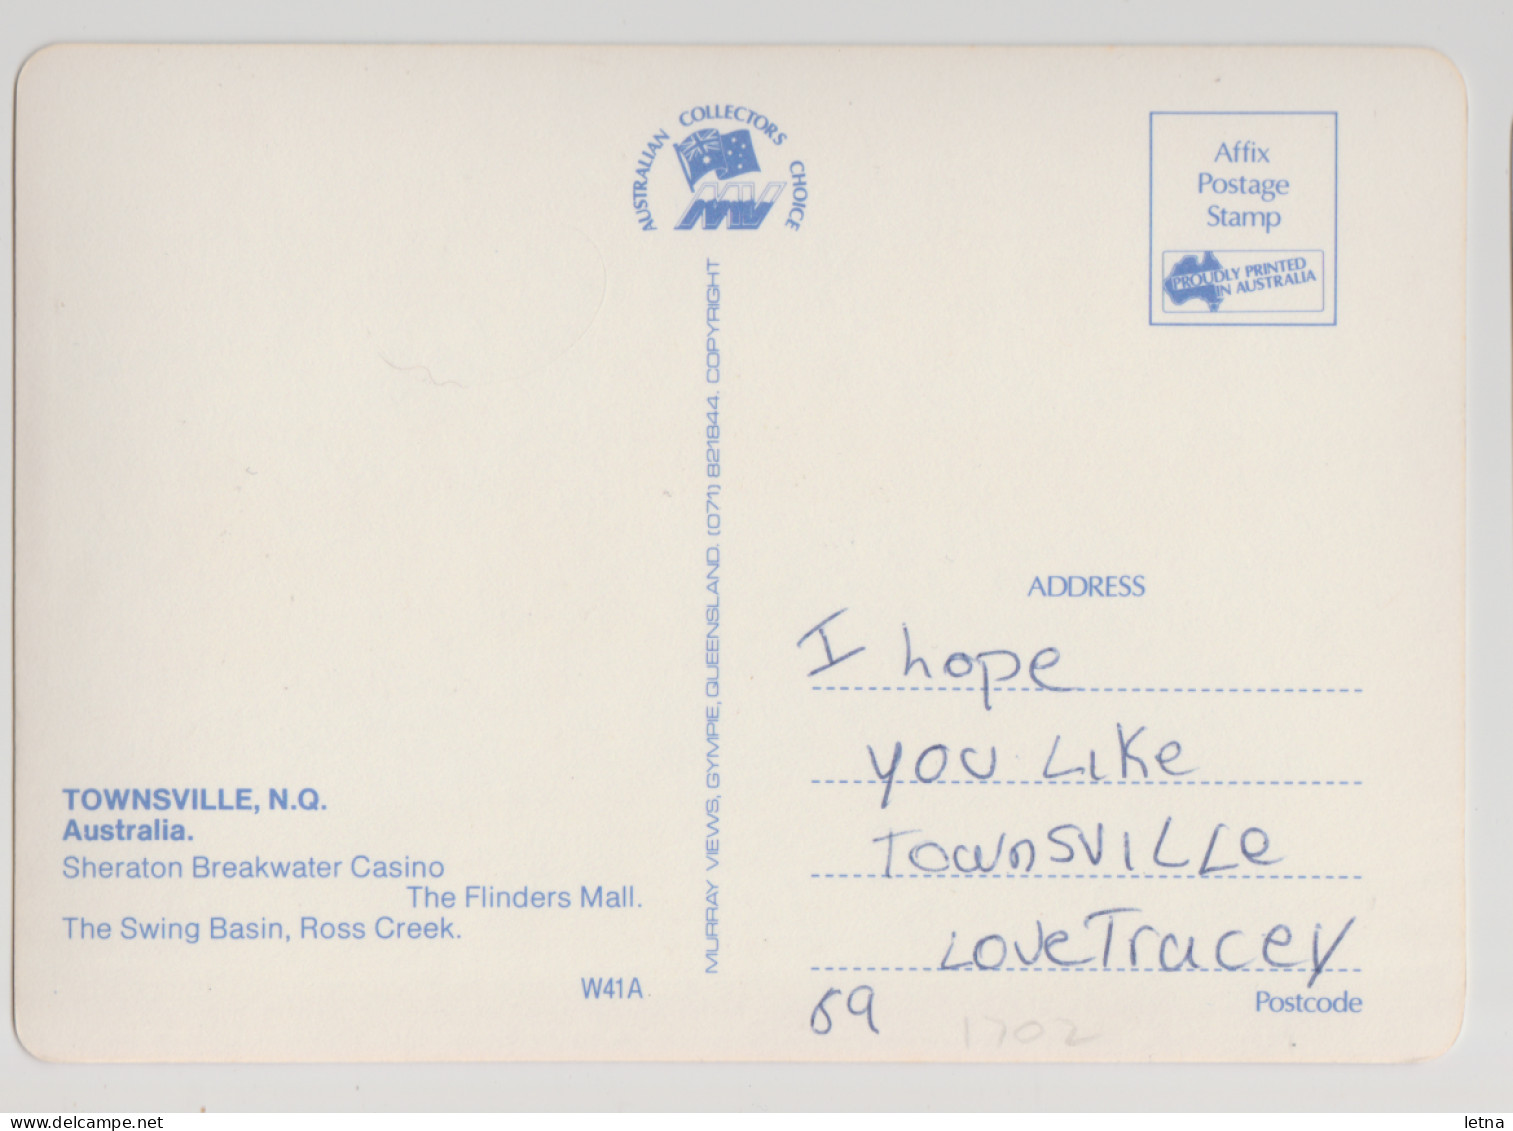 AUSTRALIAN COLLECTORS CHOICE
MV
Affix
Postage
Stamp
PROUDLY PRINTED
IN AUSTRALIA
MURRAY VIEWS, GYMPIE, QUEENSLAND. (071) 821844. COPYRIGHT
TOWNSVILLE, N.Q.
Australia.
Sheraton Breakwater Casino
The Flinders Mall.
The Swing Basin, Ross Creek.
W41A
ADDRESS
I hope
you Like
TownSVILLe
Love Tracey
Postcode
59
1702
delcampe.net
letna